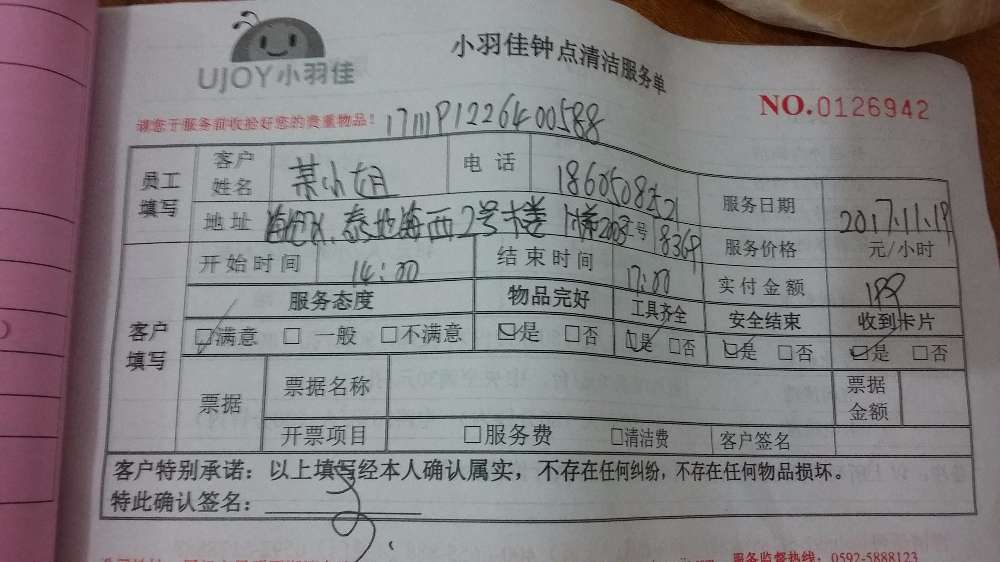 UJOY小羽佳
小羽佳钟点清洁服务单
NO.0126942
请您于服务前收捡好您的贵重物品！
17111P1226400588
员工填写
客户姓名 某小姐
电话
服务日期 2017.11.19
地址 2号楼
服务价格 元/小时
开始时间 14:00
结束时间 17:00
实付金额
客户填写
服务态度 物品完好 工具齐全 安全结束 收到卡片
□满意 □一般 □不满意 □是 □否 □是 □否 □是 □否 □是 □否
票据
票据名称
票据金额
开票项目 □服务费 □清洁费 客户签名
客户特别承诺：以上填写经本人确认属实，不存在任何纠纷，不存在任何物品损坏。
特此确认签名：
服务监督热线：0592-5888123